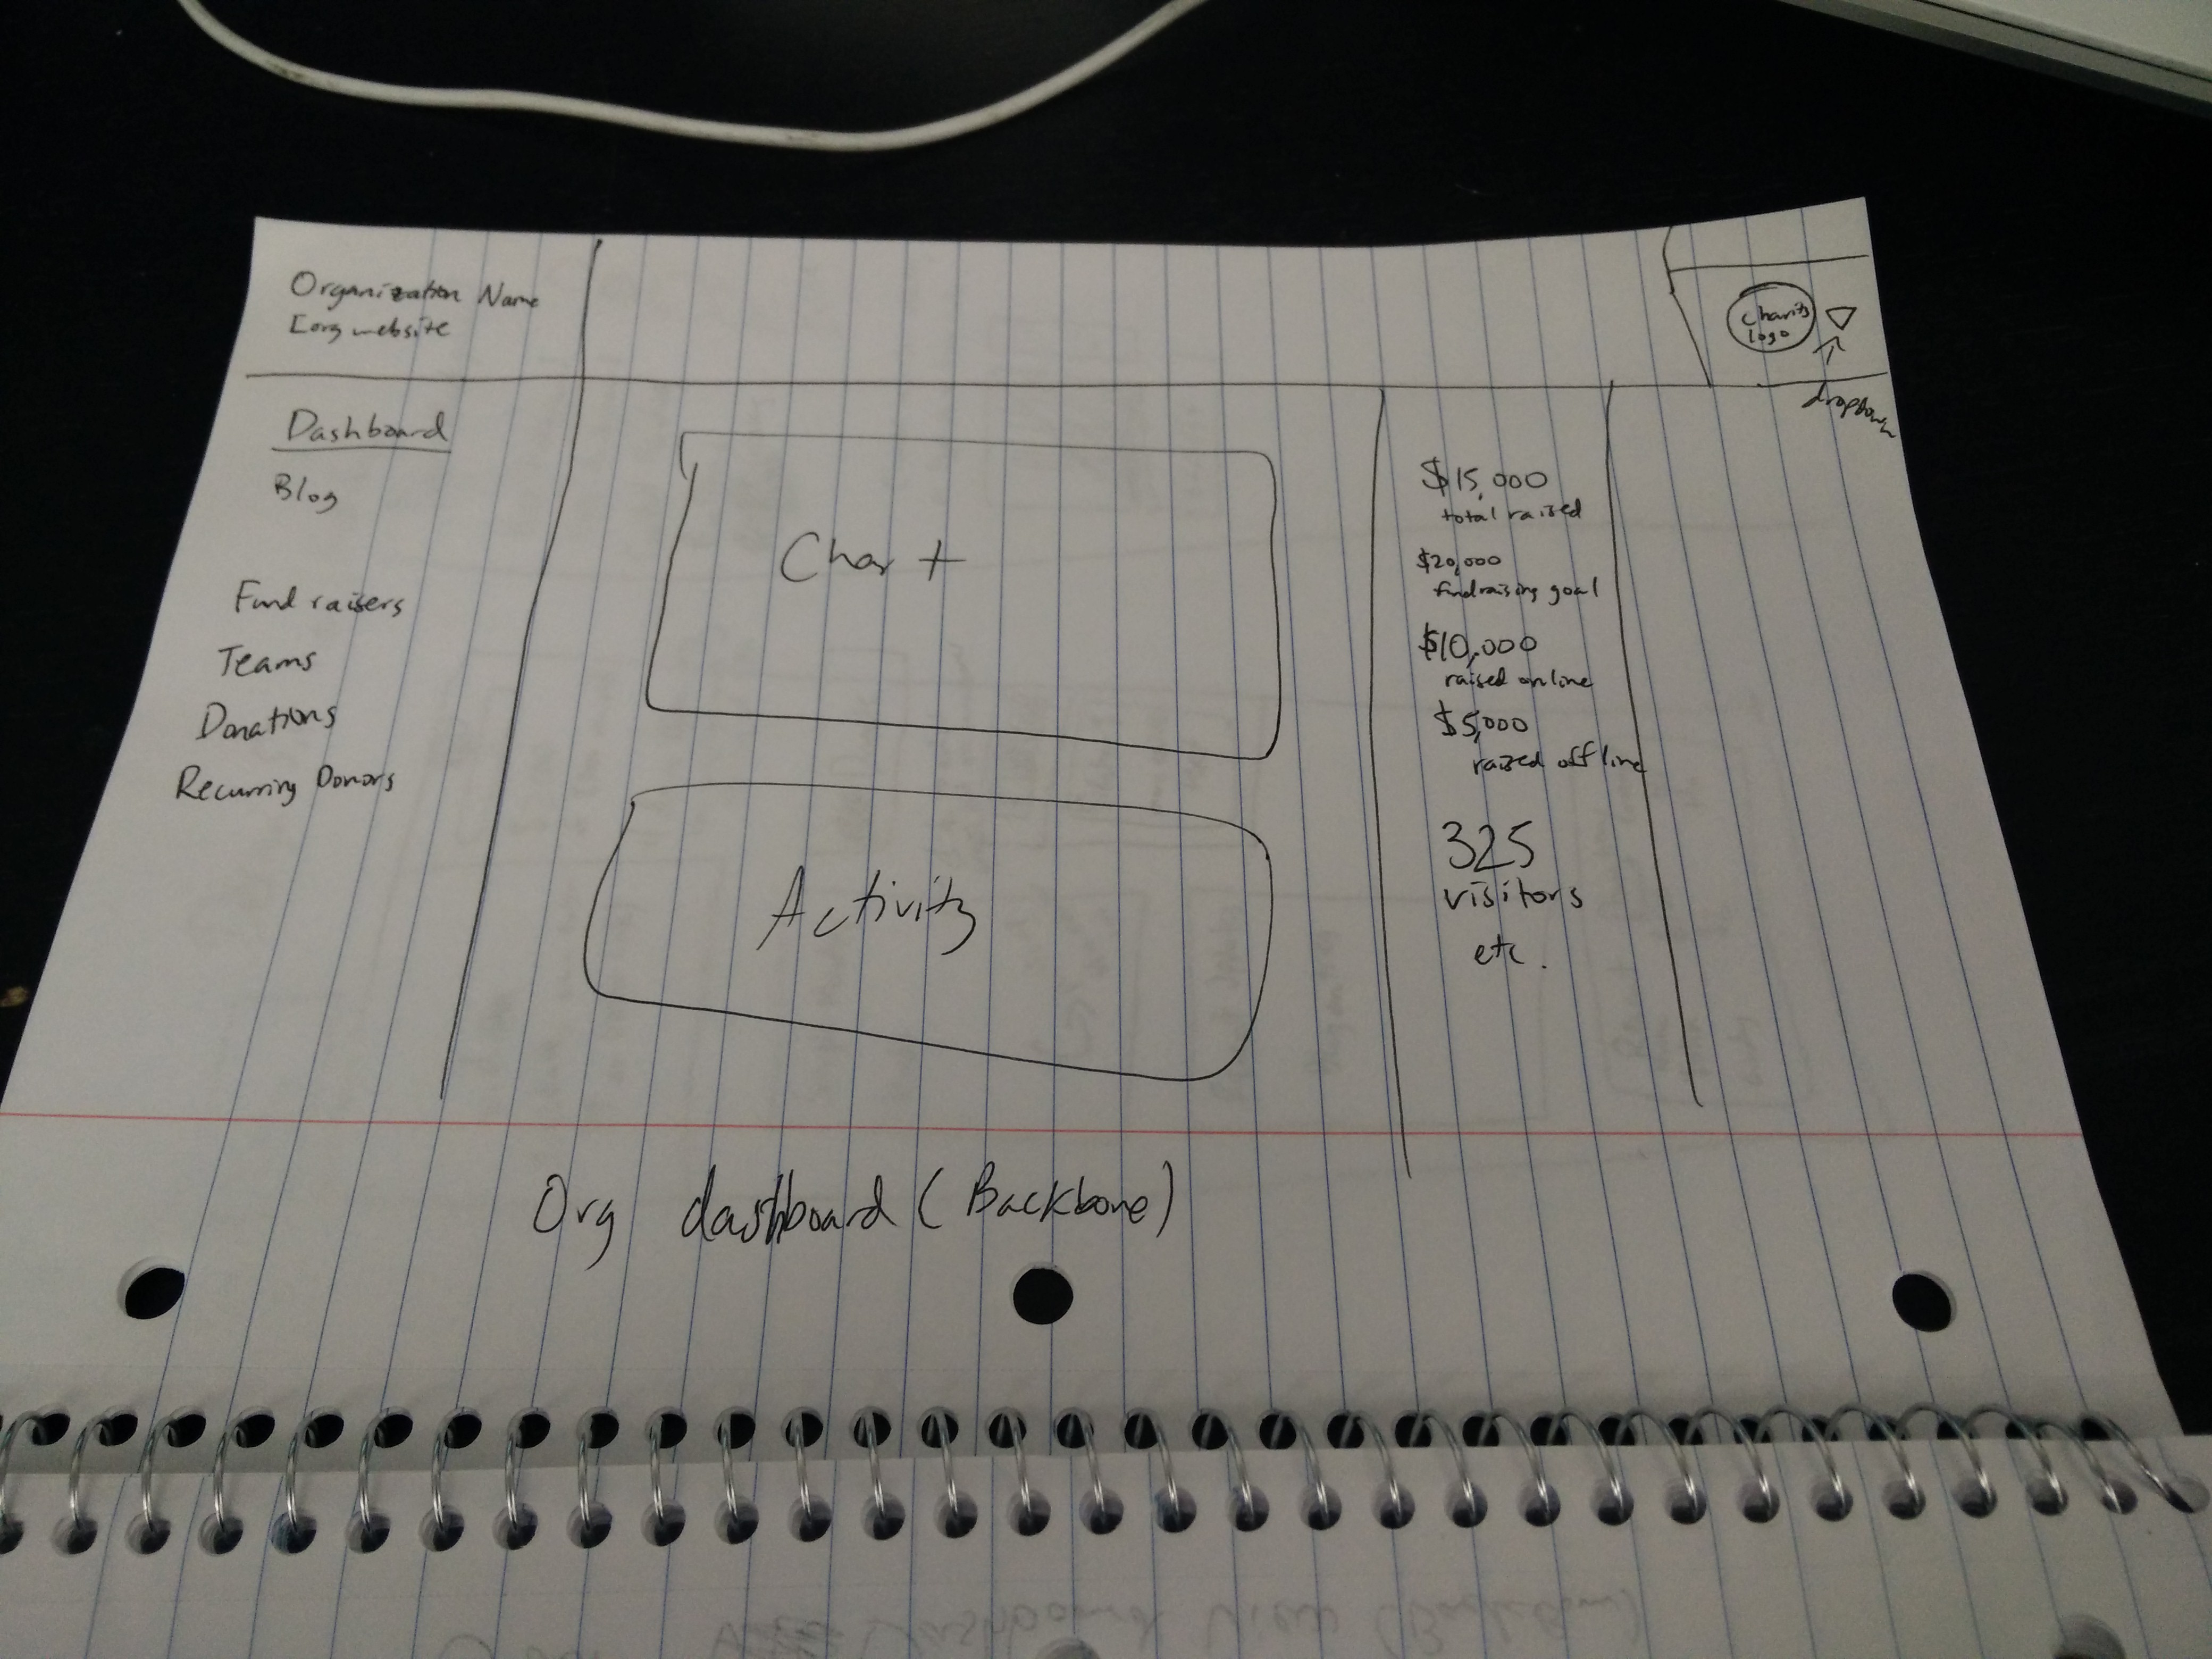 Organization Name
[org website
charity
logo
dropdown
Dashboard
Blog
Fundraisers
Teams
Donations
Recurring Donors
Chart
Activity
$15,000
total raised
$20,000
fundraising goal
$10,000
raised online
$5,000
raised offline
325
visitors
etc.
Org dashboard (Backbone)